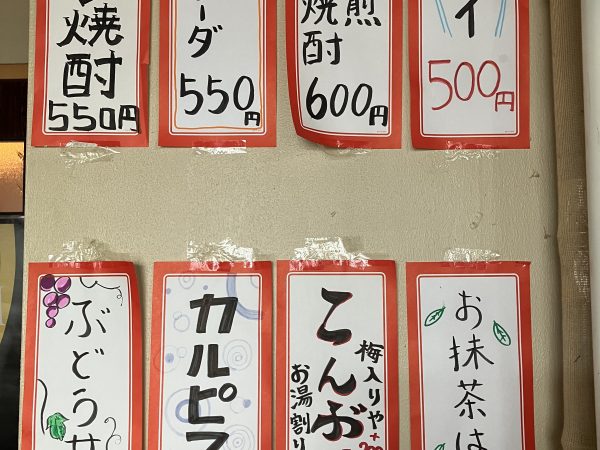 焼酎
550円
ーダ
550円
煎
焼酎
600円
イ
500円
ぶどうサ
カルピス
こんぶ
梅入りや+200
お湯割り
お抹茶は